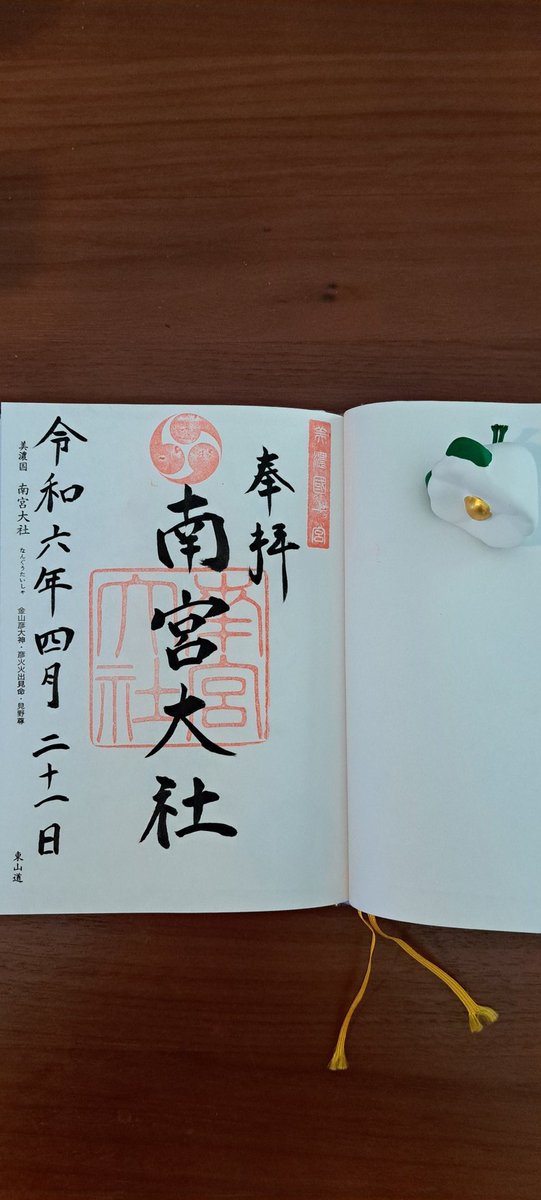 美濃國一宮
奉拝
南宮大社
南宮大社
令和六年四月二十一日
美濃国 南宮大社 なんぐうたいしゃ 金山彦大神・彦火火出見命・見野尊
東山道